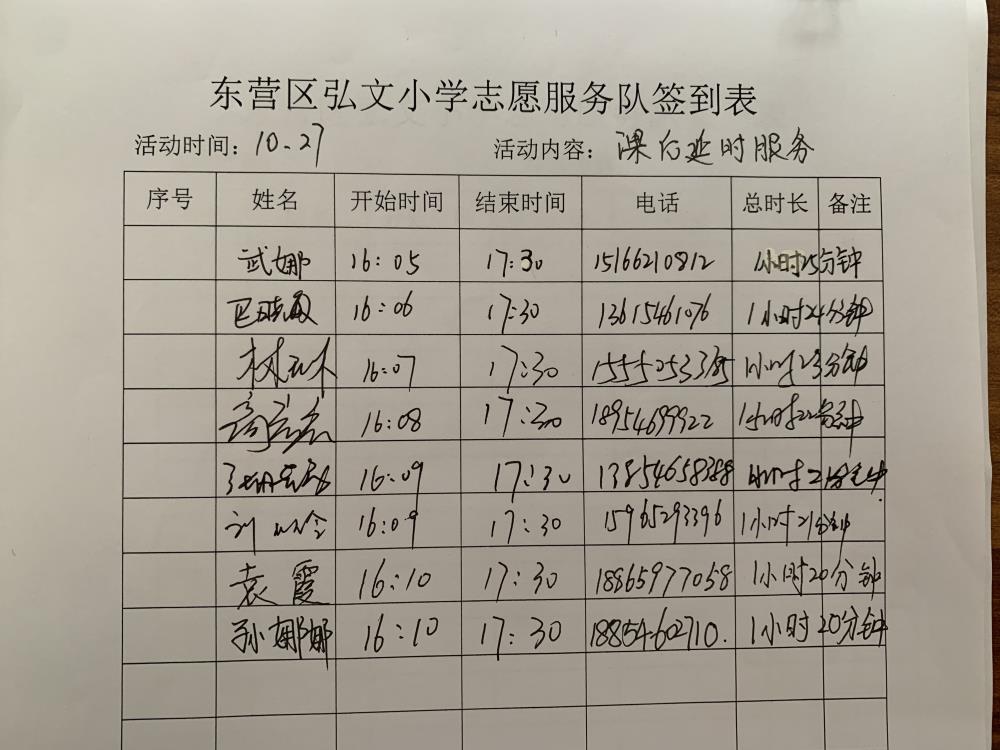 东营区弘文小学志愿服务队签到表
活动时间：10.27 活动内容：课后延时服务
序号 姓名 开始时间 结束时间 电话 总时长 备注
武娜 16:05 17:30 15166210812 1小时25分钟
16:06 17:30 13615461076 1小时24分钟
16:07 17:30 15555053385 1小时23分钟
16:08 17:30 18954699922 1小时22分钟
16:09 17:30 13854658388 1小时21分钟
16:09 17:30 15965293396 1小时21分钟
袁霞 16:10 17:30 18865977058 1小时20分钟
孙娜娜 16:10 17:30 18854602710. 1小时20分钟